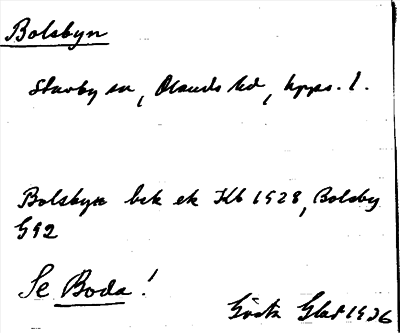 Bolsbyn
Stavby sn, Olands hd, Upps. l.
Bolsbyn bek ek Kb 1928, Bolsby
G92
Se Boda!
Gösta Glad 1926